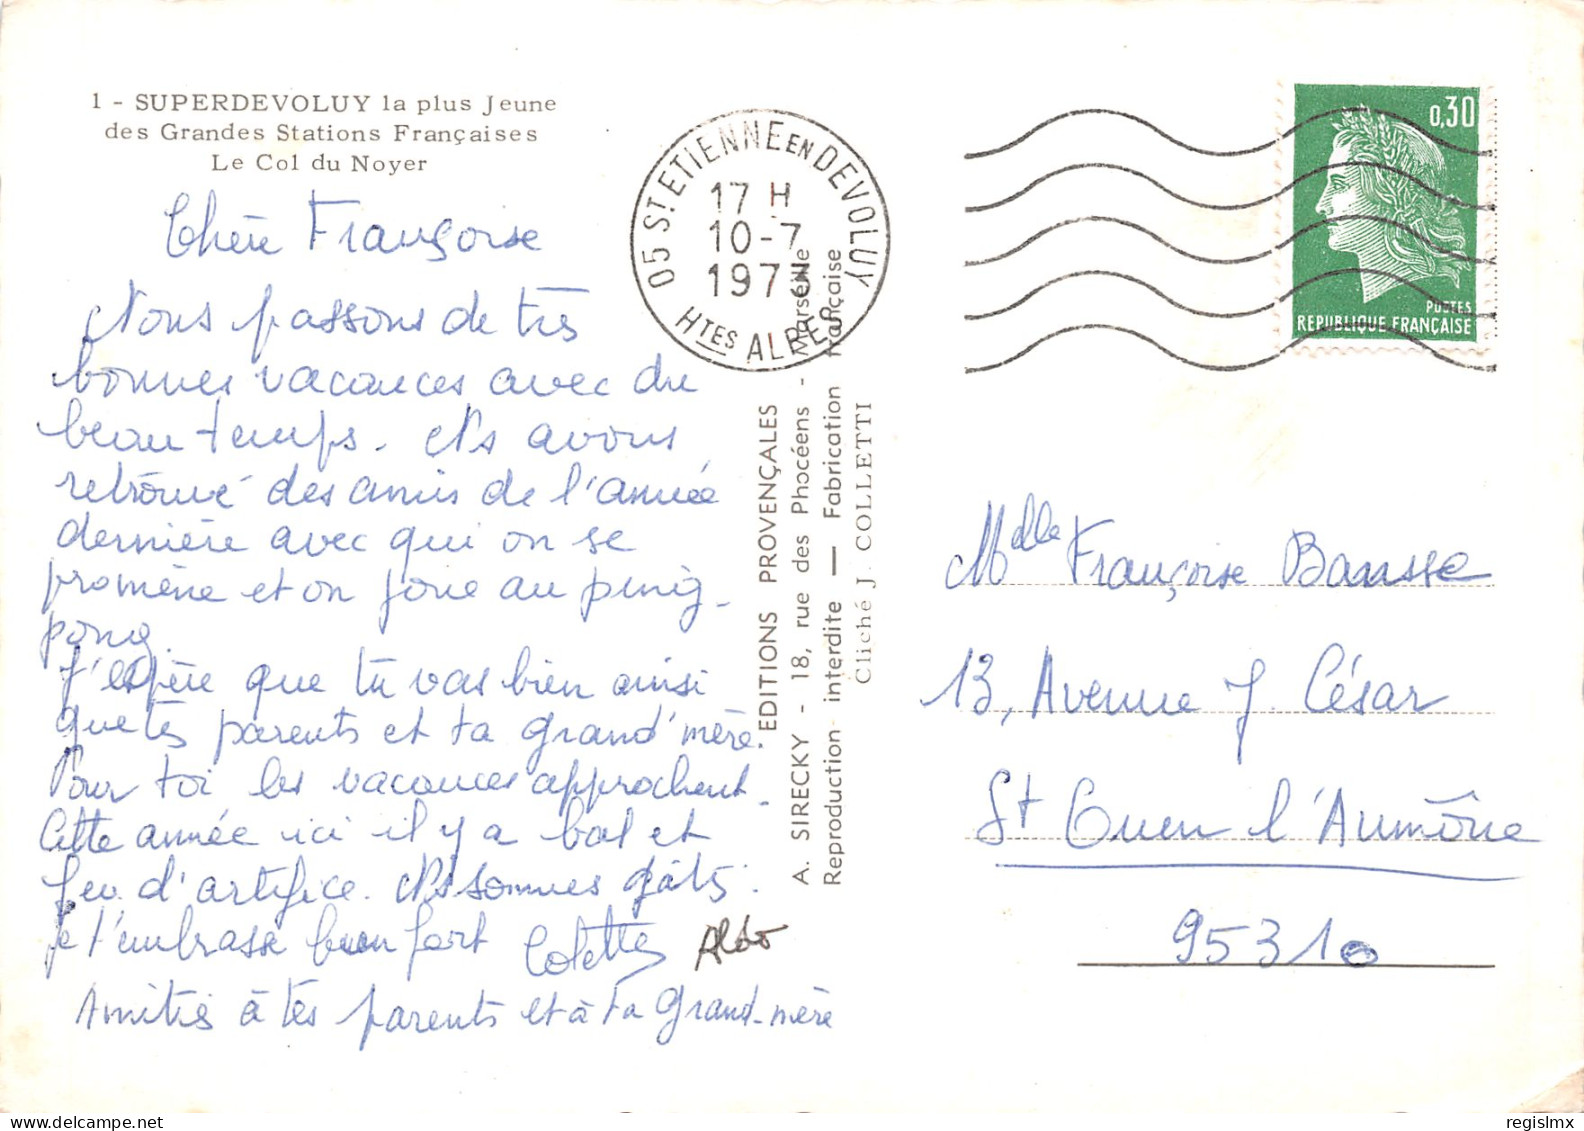 1 - SUPERDEVOLUY la plus Jeune
des Grandes Stations Françaises
Le Col du Noyer
Chère Françoise
Nous passons de très
bonnes vacances avec du
beau temps. Ns avons
retrouvé des amis de l'année
dernière avec qui on se
promène et on joue au ping-
pong.
J'espère que tu vas bien ainsi
que tes parents et ta grand'mère.
Pour toi les vacances approchent.
Cette année ici il y a bal et
feu d'artifice. Ns sommes gâtés.
Je t'embrasse bien fort Colette Aldo
Amitiés à tes parents et à ta grand-mère
05 ST ETIENNE EN DEVOLUY
17 H
10-7
1973
HTES ALPES
EDITIONS PROVENÇALES
A. SIRECKY - 18, rue des Phocéens - Marseille
Reproduction interdite — Fabrication Française
Cliché J. COLLETTI
0,30
POSTES
REPUBLIQUE FRANÇAISE
Mdlle Françoise
13, Avenue J. César
St Ouen l'Aumône
95310
regislmx